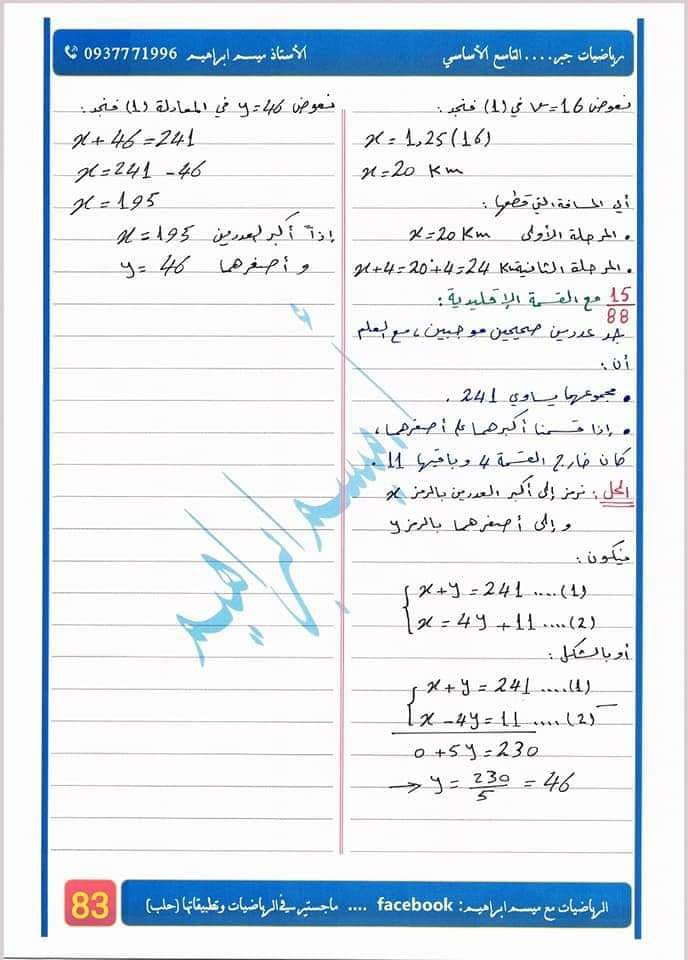 رياضيات جبر.....التاسع الأساسي
الأستاذ ميسم ابراهيم 0937771996
نعوض v=16 في (1) فنجد:
x = 1,25(16)
x = 20 Km
أي المسافة التي قطعها:
• المرحلة الأولى x = 20 Km
• المرحلة الثانية x+4=20+4=24 K
15/88 مع القسمة الإقليدية:
جد عددين صحيحين موجبين، مع العلم
أن:
• مجموعهما يساوي 241.
• إذا قسمنا أكبرهما على أصغرهما،
كان خارج القسمة 4 وباقيها 11.
الحل: نرمز إلى أكبر العددين بالرمز x
وإلى أصغرهما بالرمز y
فيكون:
x+y = 241 ....(1)
x = 4y + 11 ....(2)
أو بالشكل:
x + y = 241 ....(1)
x - 4y = 11 ....(2) -
0 + 5y = 230
→ y = 230/5 = 46
نعوض y=46 في المعادلة (1) فنجد:
x + 46 = 241
x = 241 - 46
x = 195
إذاً أكبر العددين x = 195
وأصغرهما y = 46
ميسم ابراهيم
الرياضيات مع ميسم ابراهيم: facebook .... ماجستير في الرياضيات وتطبيقاتها (حلب)
83